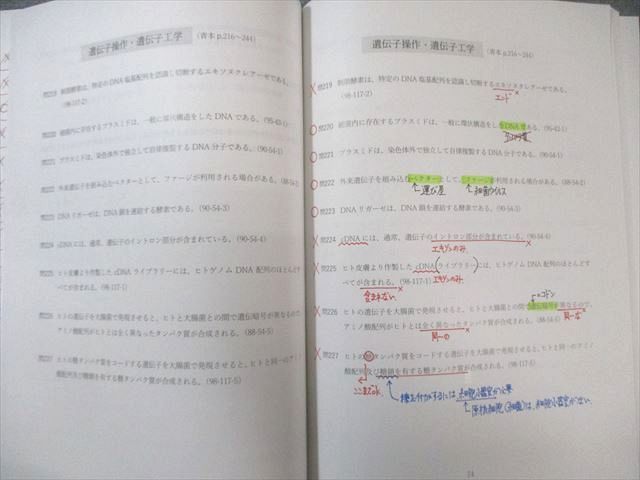 遺伝子操作・遺伝子工学 （青本 p.216～244）
問219 制限酵素は、特定の DNA 塩基配列を認識し切断するエキソヌクレアーゼである。
(98-117-2)
問220 細菌内に存在するプラスミドは、一般に環状構造をした DNA である。(95-43-1)
問221 プラスミドは、染色体外で独立して自律複製する DNA 分子である。(90-54-1)
問222 外来遺伝子を組み込むベクターとして、ファージが利用される場合がある。(88-54-2)
問223 DNA リガーゼは、DNA 鎖を連結する酵素である。(90-54-3)
問224 cDNA には、通常、遺伝子のイントロン部分が含まれている。(90-54-4)
問225 ヒト皮膚より作製した cDNA ライブラリーには、ヒトゲノム DNA 配列のほとんどす
べてが含まれる。(98-117-1)
問226 ヒトの遺伝子を大腸菌で発現させると、ヒトと大腸菌との間で遺伝暗号が異なるので、
アミノ酸配列がヒトとは全く異なったタンパク質が合成される。(88-54-5)
問227 ヒトのタンパク質をコードする遺伝子を大腸菌で発現させると、ヒトと同一のアミ
ノ酸配列及び糖鎖を有する糖タンパク質が合成される。(98-117-5)
遺伝子操作・遺伝子工学 （青本 p.216～244）
問219 制限酵素は、特定の DNA 塩基配列を認識し切断するエキソヌクレアーゼである。
(98-117-2)
エンド
問220 細菌内に存在するプラスミドは、一般に環状構造をした DNA である。(95-43-1)
問221 プラスミドは、染色体外で独立して自律複製する DNA 分子である。(90-54-1)
問222 外来遺伝子を組み込むベクターとして、ファージが利用される場合がある。(88-54-2)
↑運び屋 ↑細菌ウイルス
問223 DNA リガーゼは、DNA 鎖を連結する酵素である。(90-54-3)
問224 cDNA には、通常、遺伝子のイントロン部分が含まれている。(90-54-4)
エキソンのみ
問225 ヒト皮膚より作製した cDNA ライブラリーには、ヒトゲノム DNA 配列のほとんどす
エキソンのみ
べてが含まれる。(98-117-1)
含まれない
=コドン
問226 ヒトの遺伝子を大腸菌で発現させると、ヒトと大腸菌との間で遺伝暗号が異なるので、
同一な
アミノ酸配列がヒトとは全く異なったタンパク質が合成される。(88-54-5)
同一の
問227 ヒトのタンパク質をコードする遺伝子を大腸菌で発現させると、ヒトと同一のアミノ
酸配列及び糖鎖を有する糖タンパク質が合成される。(98-117-5)
ここまでok
糖を付加するには細胞小器官が必要
↑原核細胞(細菌)は、細胞小器官がない。
74